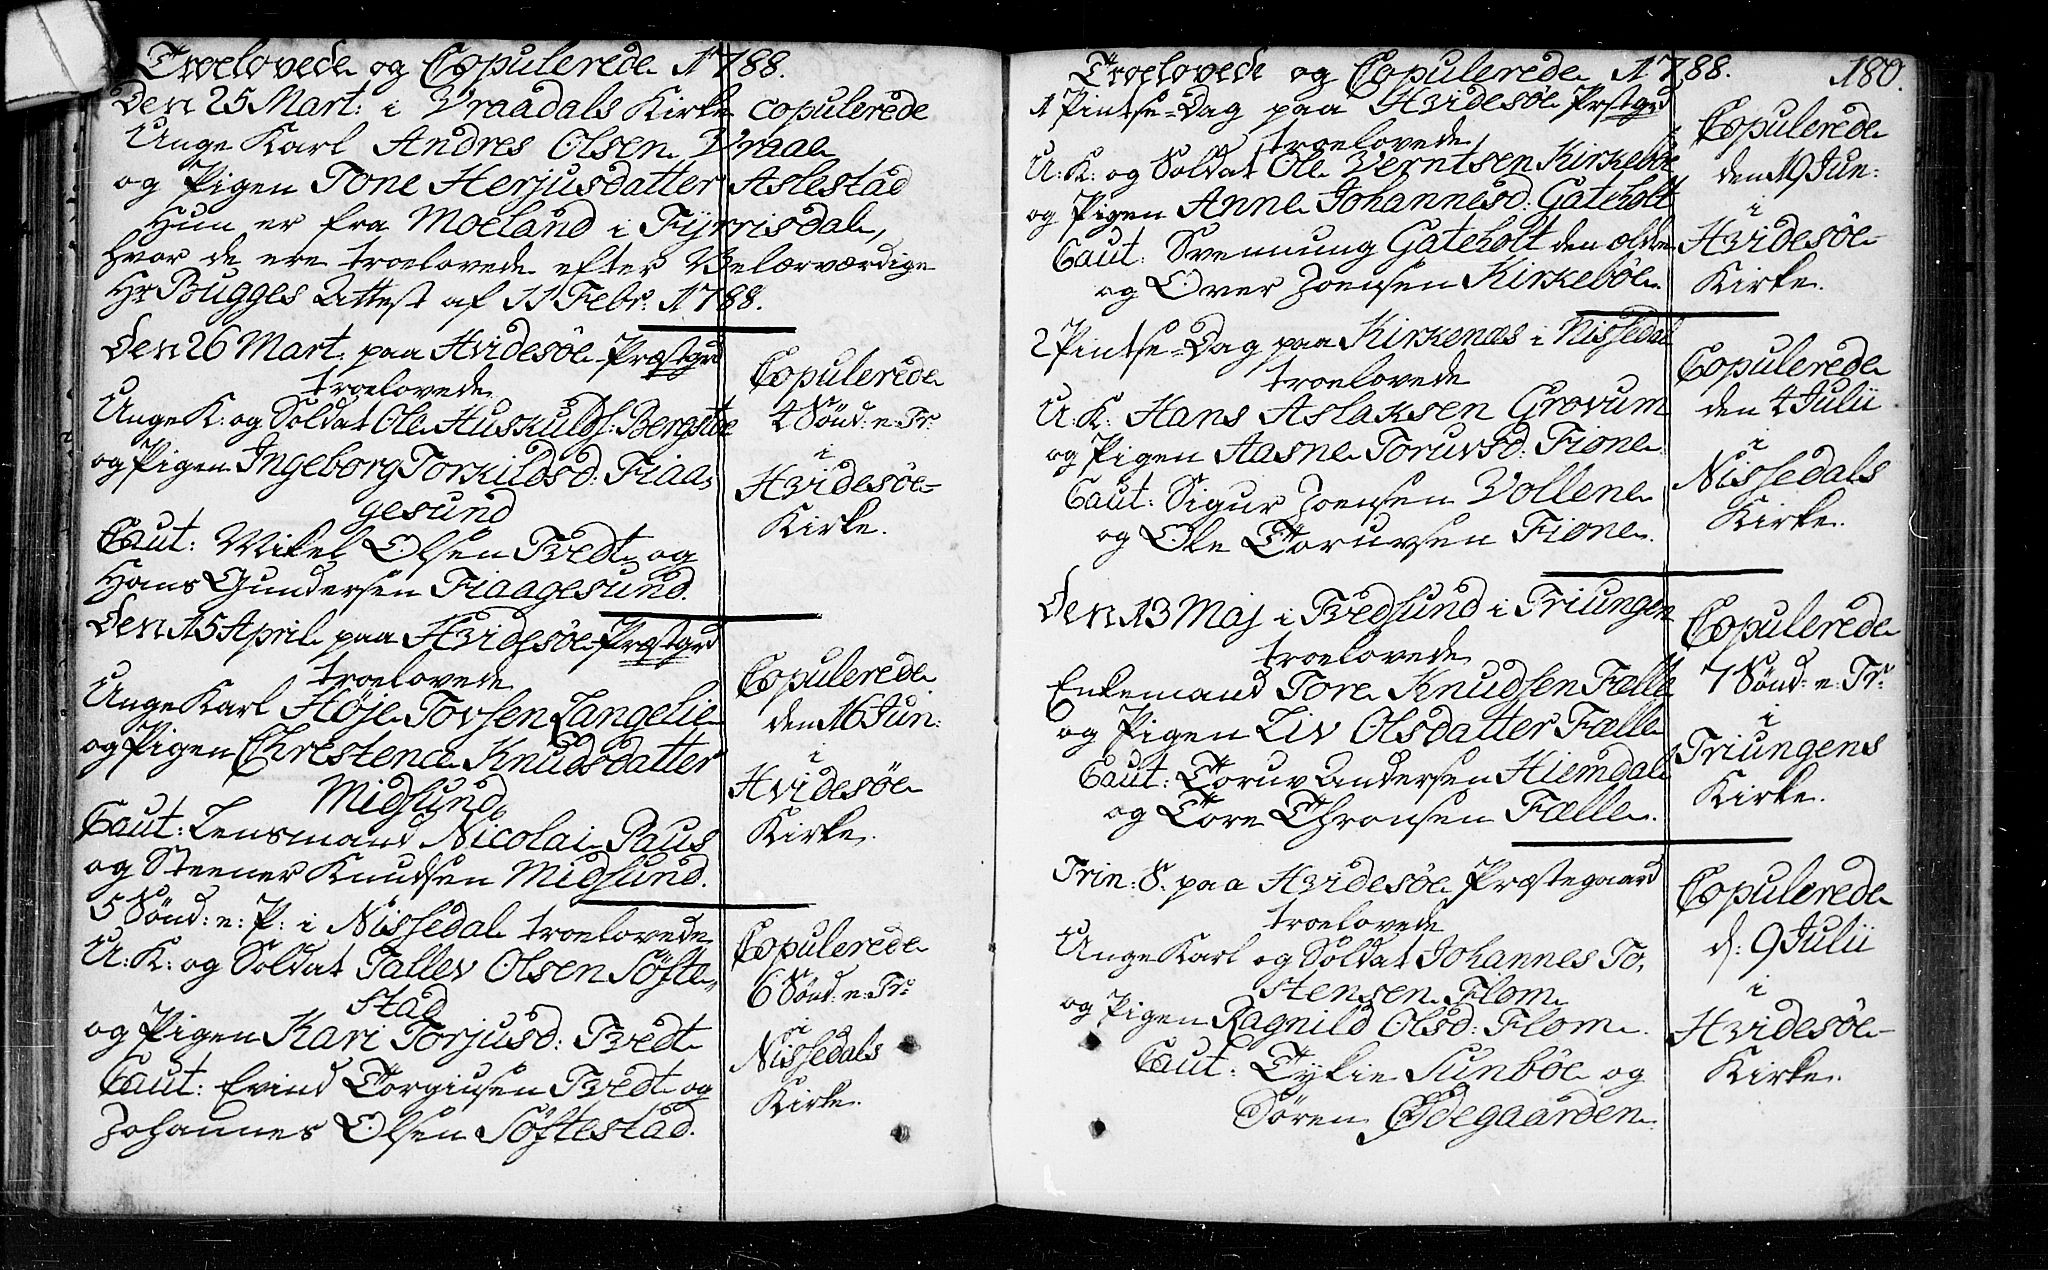 Troelovede og Copulerede 1788.
Den 25 Mart: i Vraadals Kirke copulerede
Unge Karl Andres Olsen Vraae
og Pigen Tone Herjusdatter Aslestad
Hun er fra Moeland i Fyrrisdal,
hvor de ere troelovede efter Velærværdige
Hr Bugges Attest af 11 Febr: 1788.
Den 26 Mart. paa Hvidesøe Præstgrd
troelovede
Unge K: og Soldat Ole Huskulds: Bergstøe
og Pigen Ingeborg Torkildsd: Fiaa,
gesund
Caut: Mikel Olsen Tvedt og
Hans Gundersen Fiaagesund.
Copulerede
4 Sønd: e: Tr:
i
Hvidesøe
Kirke.
Den 15 April paa Hvidesøe Præstgrd
troelovede
Unge Karl Høje Tovsen Langelie
og Pigen Chrestence Knudsdatter
Midsund
Caut: Lensmand Nicolai Paus
og Steener Knudsen Midsund.
Copulerede
den 16 Jun:
i
Hvidesøe
Kirke.
5 Sønd: e: P: i Nissedal troelovede
U: K: og Soldat Tallev Olsen Søfte,
stad
og Pigen Kari Torjusd: Tvedt
Caut: Evind Torgiusen Tvedt og
Johannes Olsen Søftestad.
Copulerede
6 Sønd: e: Tr:
i
Nissedals
Kirke.
Troelovede og Copulerede 1788. 180.
1 Pintse-Dag paa Hvidesøe Prstgrd
troelovede
U: K: og Soldat Ole Verntsen Kirkebøe
og Pigen Anne Johannesd: Gateholt
Caut: Svennung Gateholt den ældre
og Over Joensen Kirkebøe.
Copulerede
den 19 Jun:
i
Hvidesøe
Kirke.
2 Pintse-Dag paa Kirkenæs i Nissedal
troelovede
U: K: Hans Aslaksen Grovum
og Pigen Aasne Toruvsd: Fione
Caut: Sigur Joensen Vollene
og Ole Toruvsen Fione.
Copulerede
den 4 Julii
i
Nissedals
Kirke.
Den 13 Maj i Tvedsund i Triungen
troelovede
Enkemand Tore Knudsen Fælle
og Pigen Liv Olsdatter Fælle
Caut: Toruv Andersen Hiemdal
og Tore Thronsen Fælle.
Copulerede
7 Sønd: e: Tr:
i
Triungens
Kirke.
Trin: S. paa Hvidesøe Præstegaard
troelovede
Unge Karl og Soldat Johannes To,
stensen Flom
og Pigen Ragnild Olsd: Flom.
Caut: Tykie Sunbøe og
Sören Ødegaarden.
Copulerede
d: 9 Julii
i
Hvidesøe
Kirke.